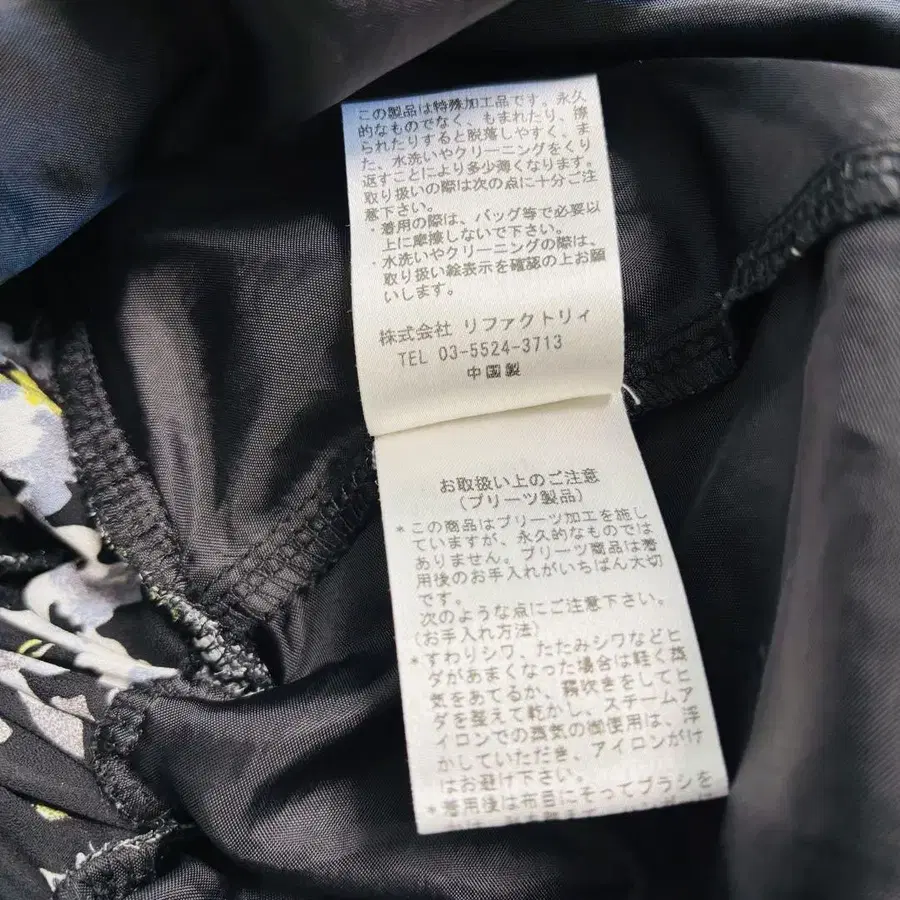 この製品は特殊加工品です。永久
的なものでなく、もまれたり、擦
られたりすると脱落しやすく、ま
た、水洗いやクリーニングをくり
返すことにより多少薄くなります。
取り扱いの際は次の点に十分ご注
意下さい。
・着用の際は、バッグ等で必要以
上に摩擦しないで下さい。
・水洗いやクリーニングの際は、
取り扱い絵表示を確認の上お願
いします。
株式会社 リファクトリィ
TEL 03-5524-3713
中国製
お取扱い上のご注意
(プリーツ製品)
*この商品はプリーツ加工を施し
ていますが、永久的なものでは
ありません。プリーツ商品は着
用後のお手入れがいちばん大切
です。
次のような点にご注意下さい。
(お手入れ方法)
*すわりシワ、たたみシワなどヒ
ダがあまくなった場合は軽く蒸
気をあてるか、霧吹きをしてヒ
ダを整えて乾かし、スチームア
イロンでの蒸気の御使用は、浮
かしていただき、アイロンがけ
はお避け下さい。
*着用後は布目にそってブラシを